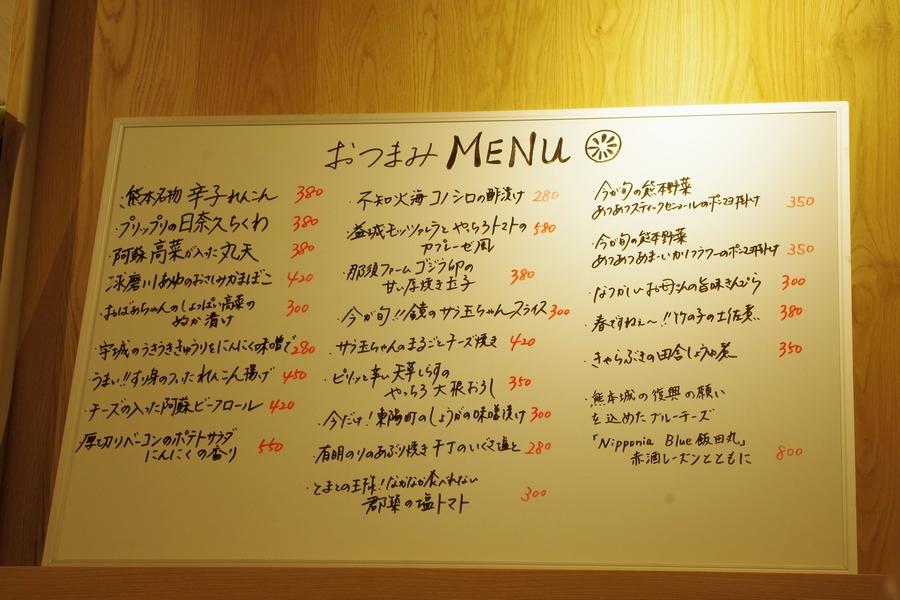 おつまみ MENU
・熊本名物 辛子れんこん 380
・プリップリの日奈久ちくわ 380
・阿蘇高菜が入った丸天 380
・球磨川あゆのおさしみかまぼこ 420
・おばあちゃんのしょっぱい高菜の
ぬか漬け 300
・宇城のうきうききゅうりをにんにく味噌で 280
うまい!!すり身の入ったれんこん揚げ 450
・チーズの入った阿蘇ビーフロール 420
・厚切りベーコンのポテトサラダ
にんにくの香り 550
・不知火海コノシロの酢漬け 280
・益城モッツァレラとやっちろトマトの 580
カプレーゼ風
・那須ファームゴジラ卵の
甘い厚焼き玉子 380
・今が旬!!鏡のサラ玉ちゃんスライス 300
・サラ玉ちゃんのまるごとチーズ焼き 420
・ピリッと辛い天草しらすの
やっちろ大根おろし 350
・今だけ!東陽町のしょうがの味噌漬け 300
・有明のりのあぶり焼き 千丁のいぐさ塩と 280
・とまとの王様!なかなか食べれない
郡築の塩トマト 300
・今が旬の熊本野菜
あつあつスティックセニョールのポン酢掛け 350
・今が旬の熊本野菜
あつあつあま〜いカリフラワーのポン酢掛け 350
・なつかしいお母さんの旨味きんぴら 300
・春ですねぇ〜!!竹の子の土佐煮.. 380
・きゃらぶきの田舎しょうゆ煮 350
・熊本城の復興の願い
を込めたブルーチーズ
「Nipponia Blue 飯田丸」
赤酒レーズンとともに 800